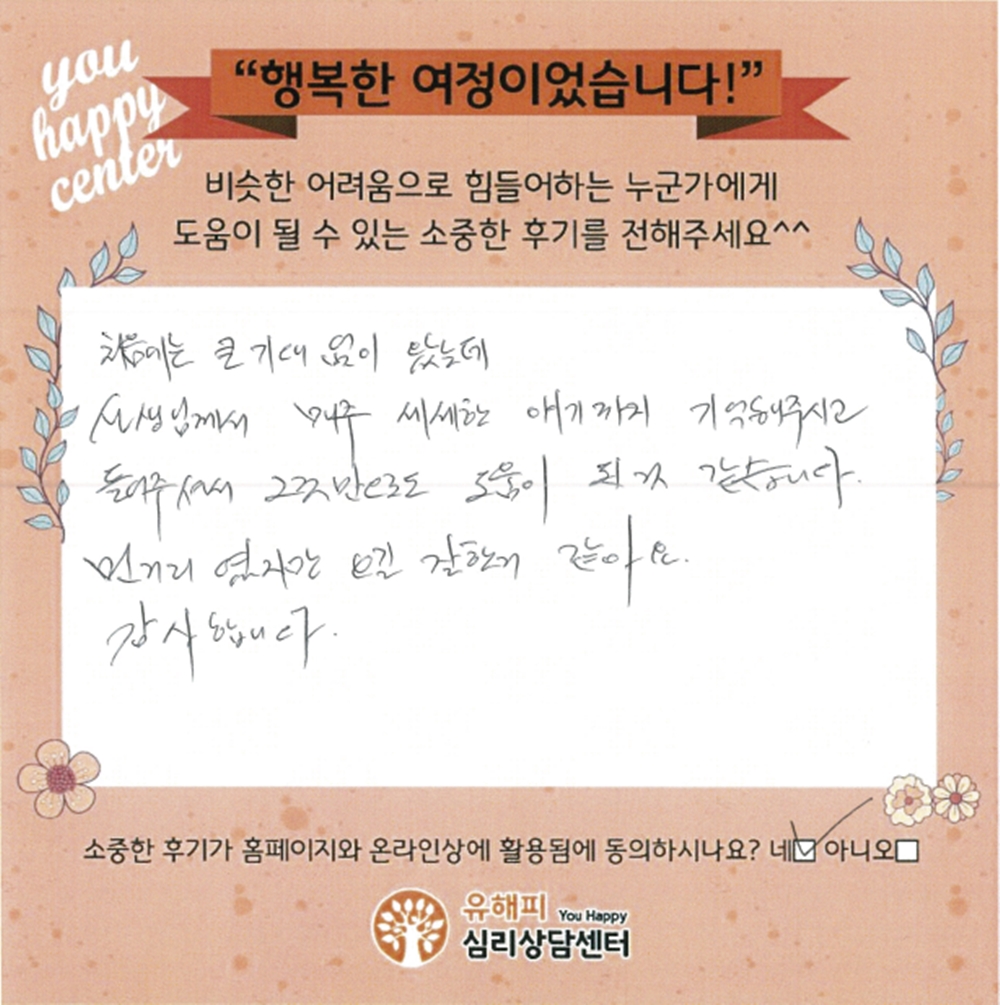 you
happy
center
“행복한 여정이었습니다!”
비슷한 어려움으로 힘들어하는 누군가에게
도움이 될 수 있는 소중한 후기를 전해주세요^^
처음에는 큰 기대 없이 왔는데
선생님께서 매주 세세한 얘기까지 기억해주시고
들어주셔서 그것만으로도 도움이 된 것 같습니다.
먼거리 였지만 오길 잘한거 같아요.
감사합니다.
소중한 후기가 홈페이지와 온라인상에 활용됨에 동의하시나요? 네 아니오
유해피 You Happy
심리상담센터